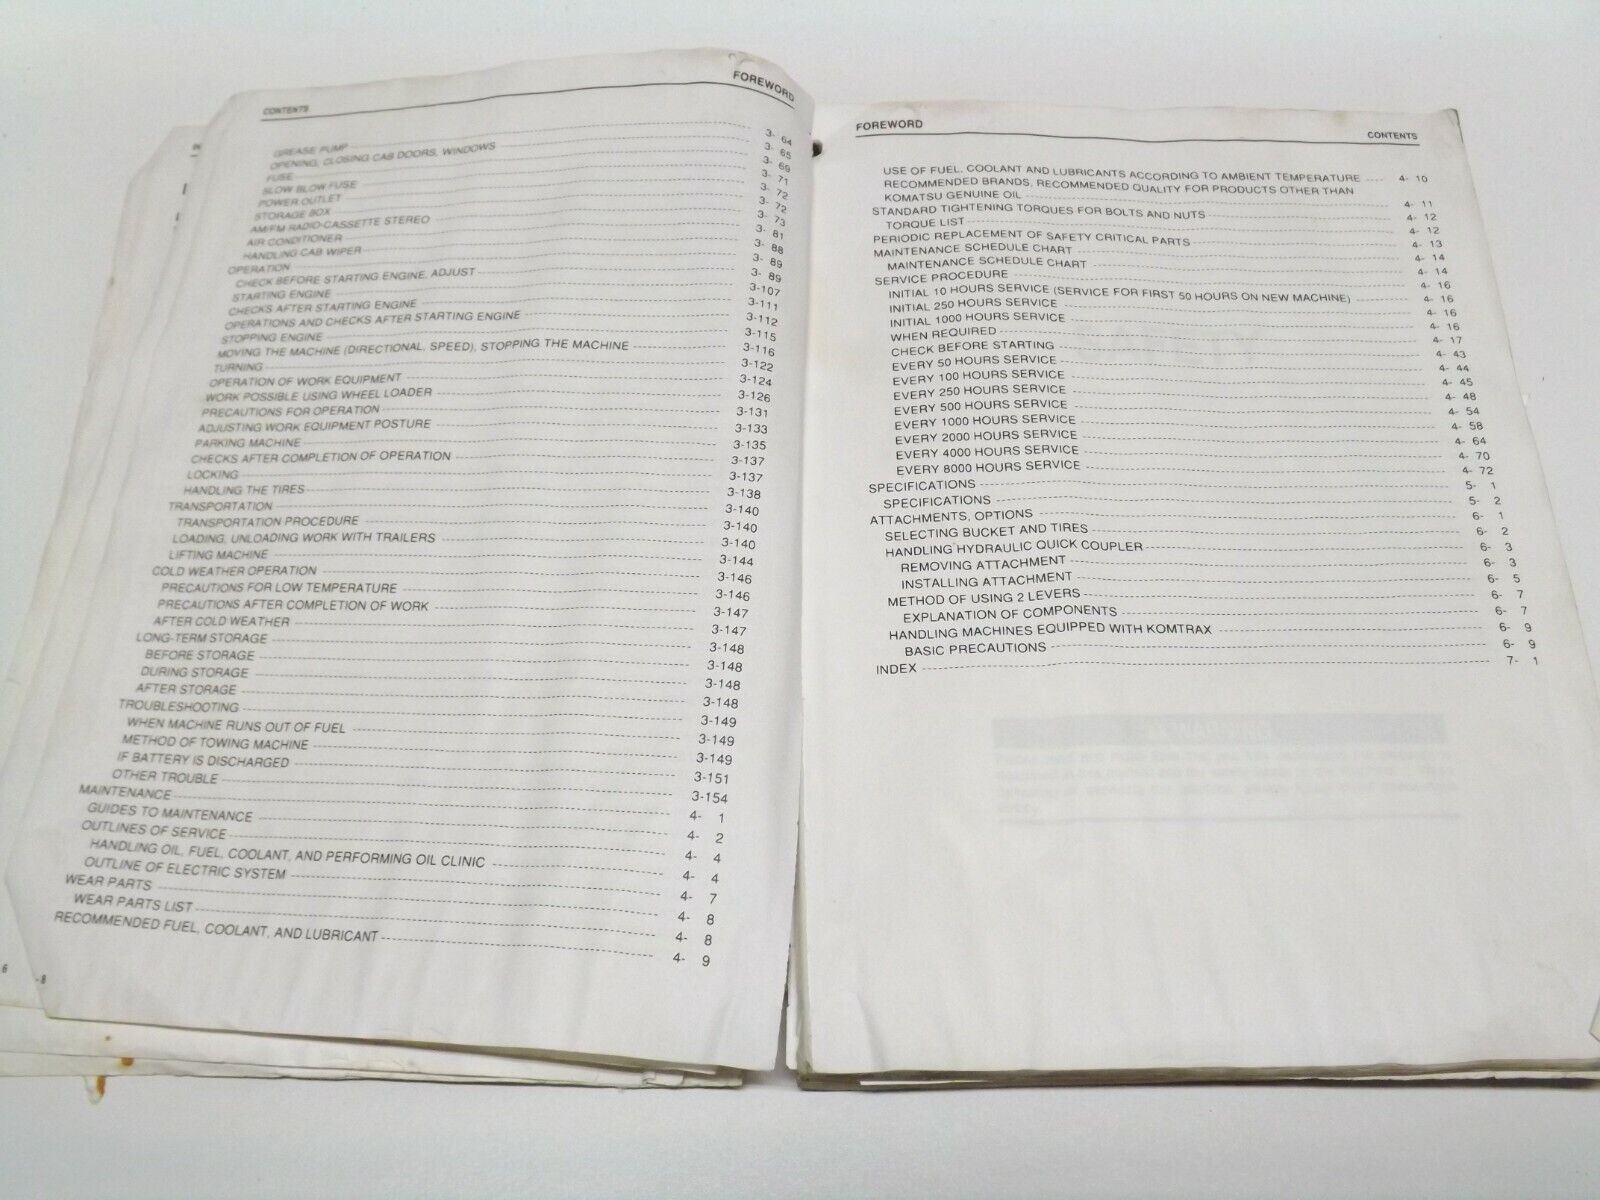 CONTENTS FOREWORD
GREASE PUMP 3- 64
OPENING, CLOSING CAB DOORS, WINDOWS 3- 65
FUSE 3- 69
SLOW BLOW FUSE 3- 71
POWER OUTLET 3- 72
STORAGE BOX 3- 72
AM/FM RADIO-CASSETTE STEREO 3- 73
AIR CONDITIONER 3- 81
HANDLING CAB WIPER 3- 88
OPERATION 3- 89
CHECK BEFORE STARTING ENGINE, ADJUST 3- 89
STARTING ENGINE 3-107
CHECKS AFTER STARTING ENGINE 3-111
OPERATIONS AND CHECKS AFTER STARTING ENGINE 3-112
STOPPING ENGINE 3-115
MOVING THE MACHINE (DIRECTIONAL, SPEED), STOPPING THE MACHINE 3-116
TURNING 3-122
OPERATION OF WORK EQUIPMENT 3-124
WORK POSSIBLE USING WHEEL LOADER 3-126
PRECAUTIONS FOR OPERATION 3-131
ADJUSTING WORK EQUIPMENT POSTURE 3-133
PARKING MACHINE 3-135
CHECKS AFTER COMPLETION OF OPERATION 3-137
LOCKING 3-137
HANDLING THE TIRES 3-138
TRANSPORTATION 3-140
TRANSPORTATION PROCEDURE 3-140
LOADING, UNLOADING WORK WITH TRAILERS 3-140
LIFTING MACHINE 3-144
COLD WEATHER OPERATION 3-146
PRECAUTIONS FOR LOW TEMPERATURE 3-146
PRECAUTIONS AFTER COMPLETION OF WORK 3-147
AFTER COLD WEATHER 3-147
LONG-TERM STORAGE 3-148
BEFORE STORAGE 3-148
DURING STORAGE 3-148
AFTER STORAGE 3-148
TROUBLESHOOTING 3-149
WHEN MACHINE RUNS OUT OF FUEL 3-149
METHOD OF TOWING MACHINE 3-149
IF BATTERY IS DISCHARGED 3-151
OTHER TROUBLE 3-154
MAINTENANCE 4- 1
GUIDES TO MAINTENANCE 4- 2
OUTLINES OF SERVICE 4- 4
HANDLING OIL, FUEL, COOLANT, AND PERFORMING OIL CLINIC 4- 4
OUTLINE OF ELECTRIC SYSTEM 4- 7
WEAR PARTS 4- 8
WEAR PARTS LIST 4- 8
RECOMMENDED FUEL, COOLANT, AND LUBRICANT 4- 9
6
-8
FOREWORD CONTENTS
USE OF FUEL, COOLANT AND LUBRICANTS ACCORDING TO AMBIENT TEMPERATURE 4- 10
RECOMMENDED BRANDS, RECOMMENDED QUALITY FOR PRODUCTS OTHER THAN
KOMATSU GENUINE OIL 4- 11
STANDARD TIGHTENING TORQUES FOR BOLTS AND NUTS 4- 12
TORQUE LIST 4- 12
PERIODIC REPLACEMENT OF SAFETY CRITICAL PARTS 4- 13
MAINTENANCE SCHEDULE CHART 4- 14
MAINTENANCE SCHEDULE CHART 4- 14
SERVICE PROCEDURE 4- 16
INITIAL 10 HOURS SERVICE (SERVICE FOR FIRST 50 HOURS ON NEW MACHINE) 4- 16
INITIAL 250 HOURS SERVICE 4- 16
INITIAL 1000 HOURS SERVICE 4- 16
WHEN REQUIRED 4- 17
CHECK BEFORE STARTING 4- 43
EVERY 50 HOURS SERVICE 4- 44
EVERY 100 HOURS SERVICE 4- 45
EVERY 250 HOURS SERVICE 4- 48
EVERY 500 HOURS SERVICE 4- 54
EVERY 1000 HOURS SERVICE 4- 58
EVERY 2000 HOURS SERVICE 4- 64
EVERY 4000 HOURS SERVICE 4- 70
EVERY 8000 HOURS SERVICE 4- 72
SPECIFICATIONS 5- 1
SPECIFICATIONS 5- 2
ATTACHMENTS, OPTIONS 6- 1
SELECTING BUCKET AND TIRES 6- 2
HANDLING HYDRAULIC QUICK COUPLER 6- 3
REMOVING ATTACHMENT 6- 3
INSTALLING ATTACHMENT 6- 5
METHOD OF USING 2 LEVERS 6- 7
EXPLANATION OF COMPONENTS 6- 7
HANDLING MACHINES EQUIPPED WITH KOMTRAX 6- 9
BASIC PRECAUTIONS 6- 9
INDEX 7- 1